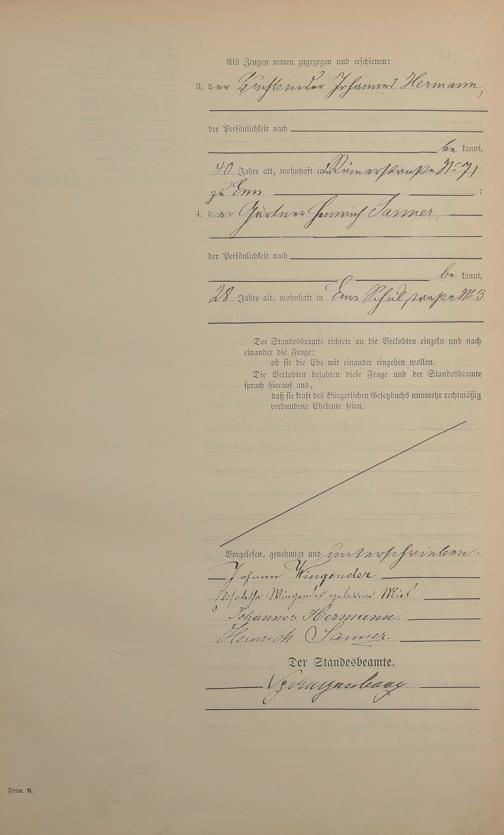 Als Zeugen waren zugezogen und erschienen:
3. der Buchbinder Johannes Hermann,
der Persönlichkeit nach
be kannt,
40 Jahre alt, wohnhaft in Römerstraße Nr. 71
zu Ems ;
4. der Gärtner Heinrich Sanner,
der Persönlichkeit nach
be kannt,
28 Jahre alt, wohnhaft in Ems Schulstraße Nr. 3
Der Standesbeamte richtete an die Verlobten einzeln und nach
einander die Frage:
ob sie die Ehe mit einander eingehen wollen.
Die Verlobten bejahten diese Frage und der Standesbeamte
sprach hierauf aus,
daß sie kraft des Bürgerlichen Gesetzbuchs nunmehr rechtmäßig
verbundene Eheleute seien.
Vorgelesen, genehmigt und unterschrieben.
Johann Wingender
Wingender geborene
Johannes Hermann.
Heinrich Sanner.
Der Standesbeamte.
Form. B.